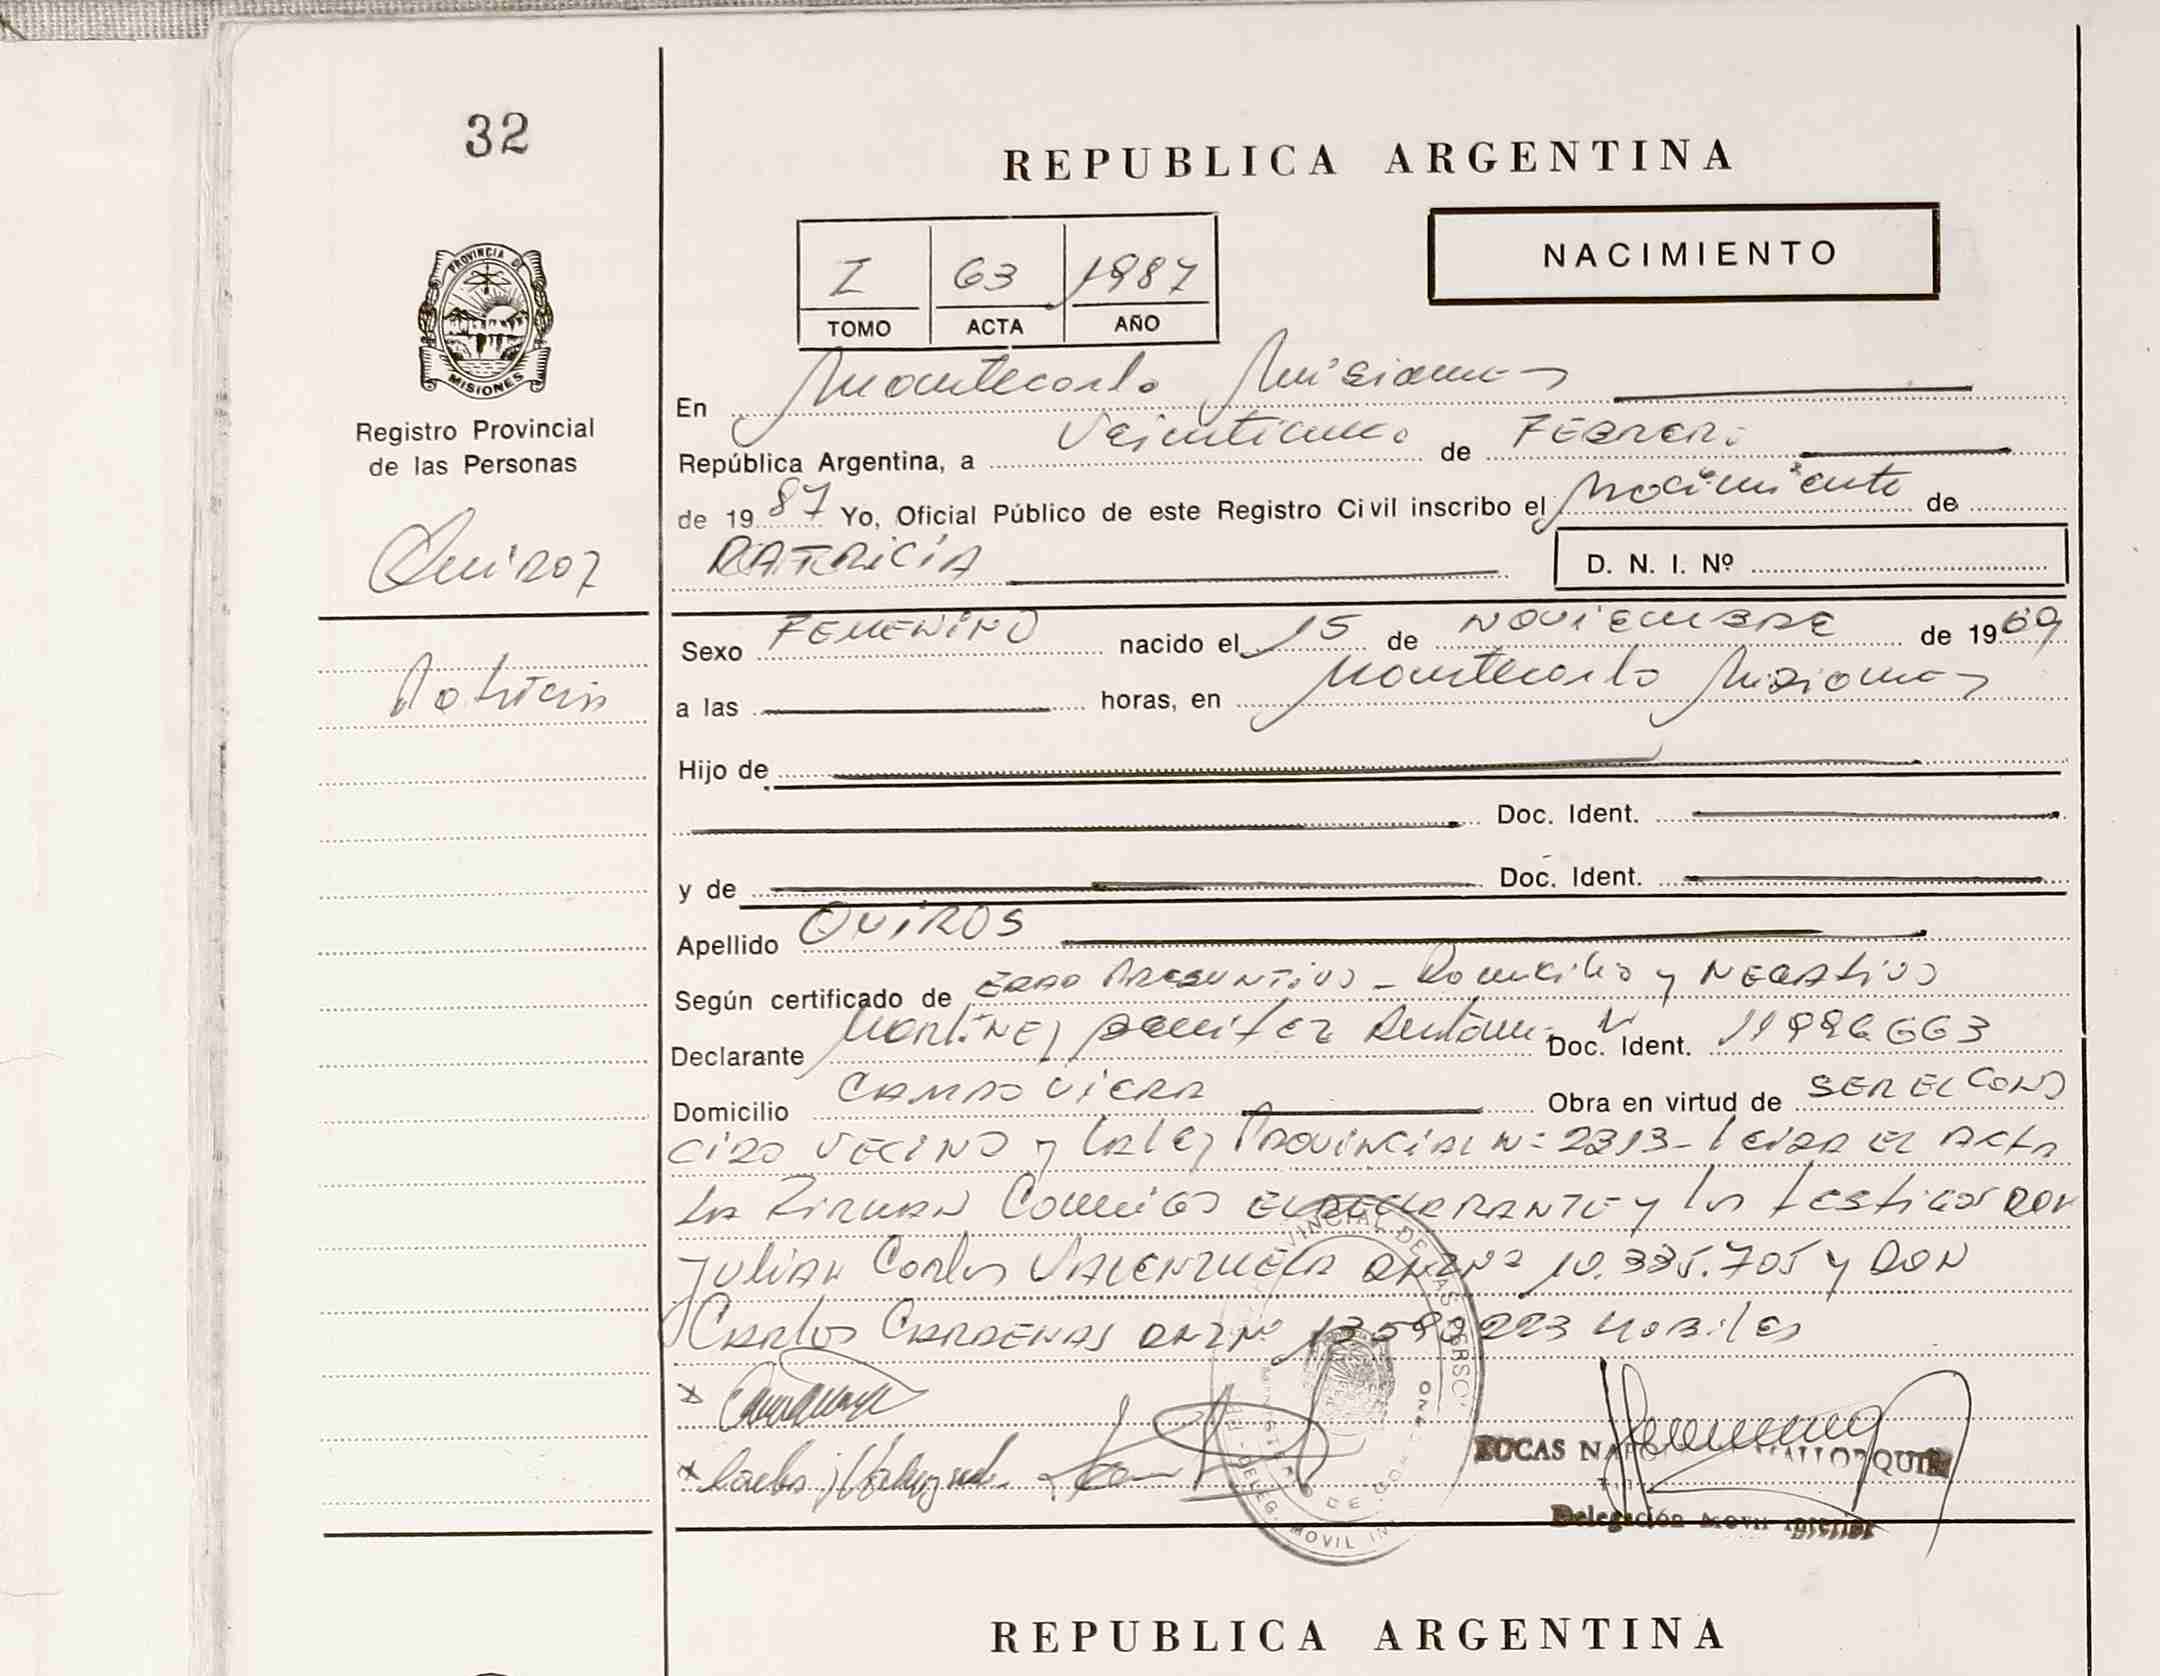 32
REPUBLICA ARGENTINA
NACIMIENTO
I 63 1987
TOMO ACTA AÑO
PROVINCIA DE
MISIONES
Registro Provincial
de las Personas
Quiroz
Patricia
En Montecarlo Misiones
República Argentina, a Veinticinco de FEBRERO
de 19 87 Yo, Oficial Público de este Registro Civil inscribo el Nacimiento de
PATRICIA D. N. I. Nº
Sexo FEMENINO nacido el 15 de NOVIEMBRE de 19 69
a las horas, en Montecarlo Misiones
Hijo de
Doc. Ident.
y de Doc. Ident.
Apellido QUIROS
Según certificado de EDAD PRESUNTIVO - Domicilio y NEGATIVO
Declarante MARTINEZ Doc. Ident. 11996663
Domicilio CAMPO VIERA Obra en virtud de SER EL CONO
CIDO VECINO y LA LEY PROVINCIAL Nº 2313 - LEIDA EL ACTA
LA FIRMAN Conmigo EL DECLARANTE y los testigos DON
JULIAN Carlos VALENZUELA DNI Nº 10.335.705 y DON
Carlos CARDENAS DNI Nº HABILES
LUCAS
Delegación Movil Interior
REPUBLICA ARGENTINA